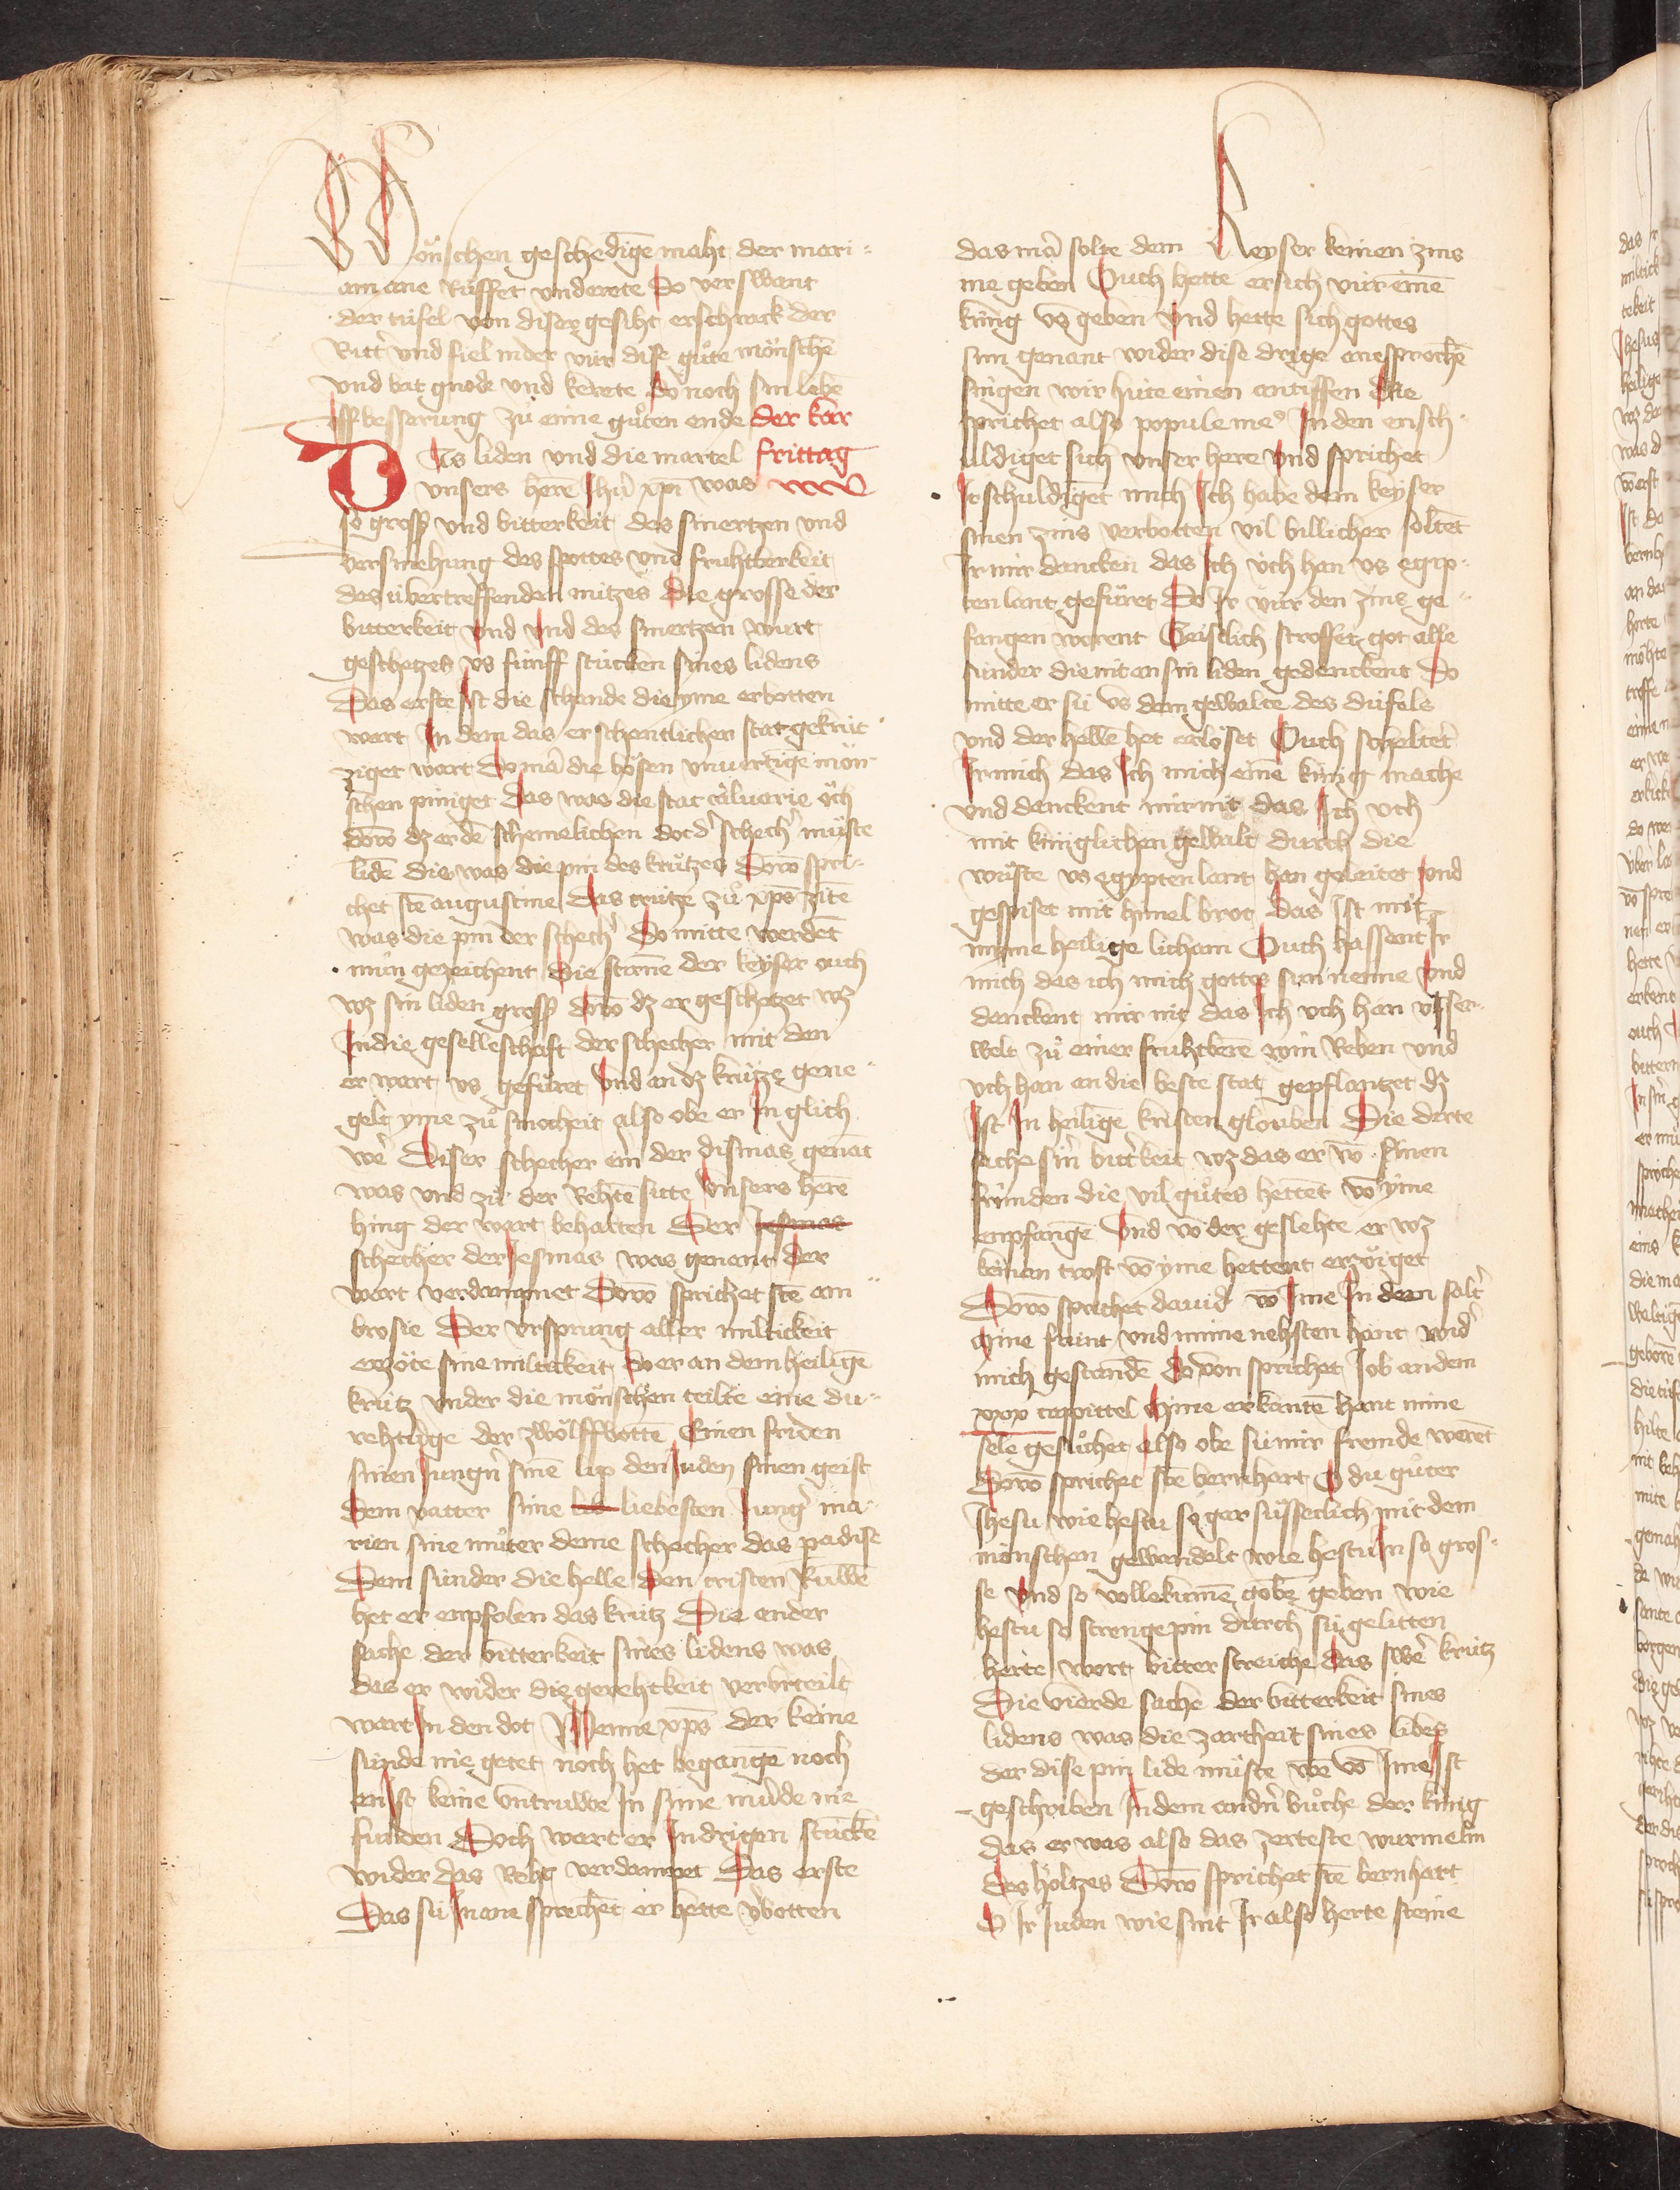 Mönschen geschedigē maht der mari-
am ane Rüffet vnd erete Do verswant
der tüfel von diser gesiht erschrack der
Ritt' vnd fiel nider vür dise gůte mönschē
vnd bat gnode vnd kerete do noch sin lebē
Jff besserung zů eime gůten ende der kar
Dis liden vnd die martel frittag
vnsers herē Jhū xpi was xxxv
so gross vnd bitterkeit des smertzen vnd
versmehung des spottes vnd fruhtberkeit
des übertreffenden nutzes die grosse der
bitterkeit vnd vnd des smertzen wurt
geschetzes vs fünff stücken sines lidens
Das erste Jst die schande die yme erbotten
wart Jn dem das er schentlicher stat gekrüt
ziget wart Do mā die bösen vnvertigē mön
schen piniget das was die stat caluarie öch
dorō dz er dē schemelichen dot d' schech' můste
lidē die was die pin des krützes Dorō spri-
chet stē augustine Das crütze zů xps zitē
was die pin der schech' Do mitte werdēt
nün gezeichent die stirnē der keyser ouch
wz sin liden gross dorō dz er geschetzet wz
Jn die geselleschaft der schecher mit den
er wart vs gefüret vnd an dz krütze gene-
gelt yme zů smocheit also obe er Jn glich
we' Diser schecher ein der dismas genāt
was vnd zů der Rehtē site vnsers herē
hing der wart behalten Der Jesmas
schecher der Jesmas was genant der
wart verdampnet Dorō sprichet stē am
brosie Der vrsprung aller miltickeit
erzöte sine miltikeit do er an dem heiligē
krütz vnder die mönschen teilte eine du-
rehtūge der zwölffbottē Einen friden
sinen Jungn̄ sinē lip den Juden sinen geist
dem vatter sime lieb liebesten Jung' ma-
rien sine můter deme schecher das padise
Dem sünder die helle den cristen Rüwē
het er enpfolen das krütz Die ander
sache der bitterkeit sines lidens was
das er wider die gerehtkeit verurteilt
wart Jn den dot Wenne xps der keine
sünde nie getet noch het begangē noch
en Jst keine vntruwe Jn sime munde nie
funden Doch wart er Jn drigen stückē
wider das Reht verdampnet Das erste
Das sü Jn ane sprochēt er hette vbotten
das mā solte dem Keyser keinen zins
me geben Ouch hette er sich vür einē
küng vsgeben vnd hette sich gottes
sun genant wider dise drige anesprochē
singen wir hüte einen antiffen die
sprichet also popule me9 Jn den ensch-
uldiget sich vnser here vnd sprichet
Jr schuldigēt mich Jch habe dem keyser
sinen zins verbotten vil billicher soltēt
Jr mir dancken das Jch üch han vs egip-
ten lant gefüret Do Jr vür den zins ge-
fangen worent Geistlich stroffet got alle
sünder die nit an sin liden gedenckent Do
mitte er sü vs dem gewalte des düfels
vnd der hellē het erlöset Ouch scheltēt
Jr mich das Jch mich einē künig mache
vnd danckent mir nit das Jch üch
mit küniglichen gewalt durch die
wüste vs egypten lant han geleitet vnd
gespiset mit himel brot Das Jst mit
mime heilige licham Ouch hassent Jr
mich das ich mich gottes sun nenne vnd
danckent mir nit das Jch üch han vsser-
welt zů einer fruhtberē win Reben vnd
üch han an die beste stat gepflantzet dz
Jst Jn heiligē kristen glouben Die derte
sache sin' bit'keit wz das er vō sinen
fründen die vil gůtes hettēt vō yme
enpfangē vnd vō der geslehte er wz
keinen trost vō yme hettent erzöiget
Dorō sprichet dauid vō Jme Jn dem salt'
Mine fründ vnd mine nehsten hant wid'
mich gestandē do von sprichet Job an dem
xxx cappittel Mine erkantē hant mine
sele geflůchet also obe sü mir fremde werēt
Dorō sprichet stē bernhart O du gůter
Jhesu wie hestu so gar süsseclich mit dem
mönschen gewandelt wie hestu Jn so gros-
se vnd so vollekumē gobē geben wie
hestu so strenge pin durch sü gelitten
herte wort bitter streiche das swē' krütz
Die vierde sache der bitterkeit sines
lidens was die zartheit sines libes
der dise pin lidē můste wē vō Jme Jst
geschriben Jn dem andn̄ bůche der küng
das er was also das zerteste würmelin
des holtzes Dorō sprichet stē bernhart
O Jr Juden wie sint Jr also herte steine